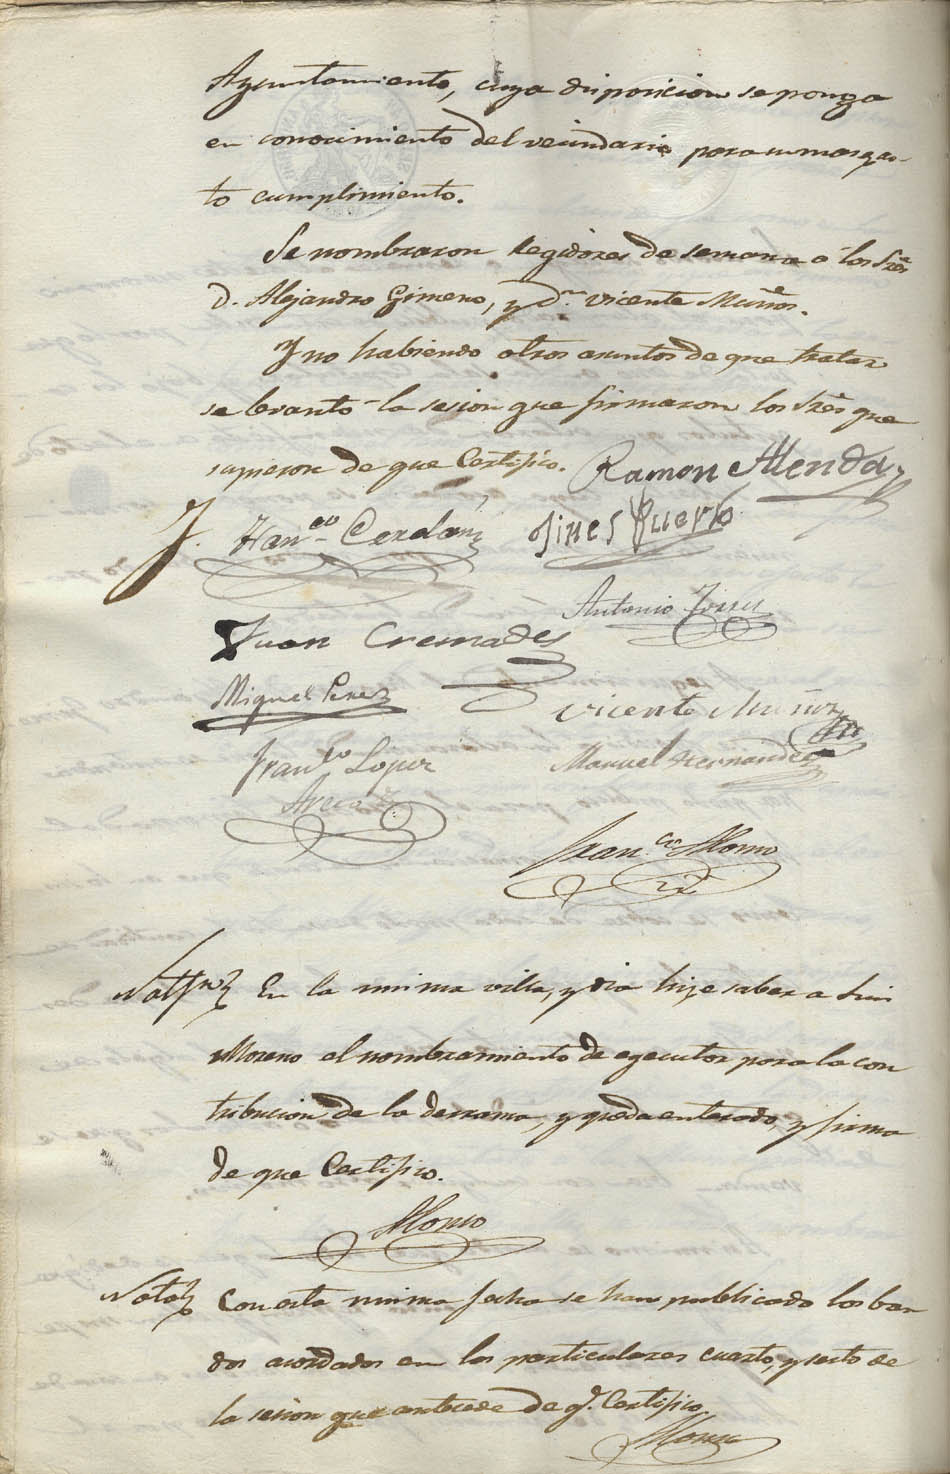 Ayuntamiento, cuya disposicion se ponga
en conocimiento del vecindario para su mas exac-
to cumplimiento.
Se nombraron Regidores de semana á los Sres
D. Alejandro Gimeno, y Dn. Vicente Muñoz.
Y no habiendo otros asuntos de que tratar
se levantó la sesion que firmaron los Sres que
supieron de que Certifico. Ramon Allenda
Franco Cerdán Jines Puerto
Antonio Torres
Juan Cremades
Miguel Perez Vicente Muñoz
Franco Lopez Manuel Hernandez
Franco Alonso
Notfn En la misma villa, y dia hize saber a Luis
Moreno el nombramiento de egecutor para la con
tribucion de la derrama, y queda enterado, y firma
de que Certifico.
Alonso
Nota Con esta misma fecha se han publicado los ban
dos acordados en los particulares cuarto, y sesto de
la sesion que antecede de q. Certifico
Alonso